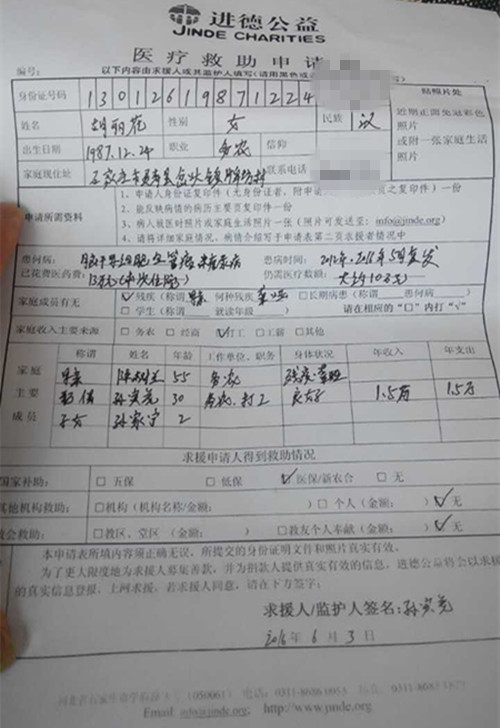 进德公益
JINDE CHARITIES
医疗救助申请
编号: 以下内容由求援人或其监护人填写(请用黑色或
身份证号码 13012619871224 贴照片处
姓名 胡丽花 性别 女 民族 汉 近期正面免冠彩色照片
或附一张家庭生活照片
出生日期 1987.12.24 职业 务农 信仰
家庭现住址 石家庄市灵寿县 联系电话
申请所需资料
1、申请人身份证复印件(无身份证者,附申请 页之复印件)一份
2、能反映病情的病历主要页复印件一份
3、病人被医时照片或家庭生活照片一张(照片可发送至:info@jinde.org)
4、请将详细家庭情况、病情介绍写于申请表第二页求援者情况中
患何病: 患病时间: 2016年5月复发
已花费医药费: 13万元 仍需医疗数额: 大约10万元
家庭成员有无 ☑残疾(称谓 何种残疾 ) □长期病患(称谓 患何病 )
□学生(称谓 就读年级 ) 请在相应的“□”内打“√”
家庭收入主要来源 □务农 □经商 ☑打工 □工薪 □其他
家庭主要成员 称谓 姓名 年龄 工作单位、职务 身体状况 年收入 年支出
55 务农
孙宾亮 30 务农、打工 良好 1.5万 1.5万
子女 孙家宁 2
求援申请人得到救助情况
国家补助: □五保 □低保 ☑医保/新农合 □无
其他机构救助: □机构(机构名称/金额: ) □个人(金额: ) ☑无
教会救助: □教区、堂区(金额: ) □教友个人奉献(金额: ) ☑无
本申请表所填内容须正确无误,所提交的身份证明文件和照片真实有效。
为了更大限度地为求援人募集善款,并为捐款人提供真实有效的信息,进德公益将会以求援
的真实信息登报、上网求援,若求援人同意,请在下方签字:
求援人/监护人签名:孙宾亮
2016年6月3日
(050061) 电话:0311-
Email info@jinde.org http://www.jinde.org